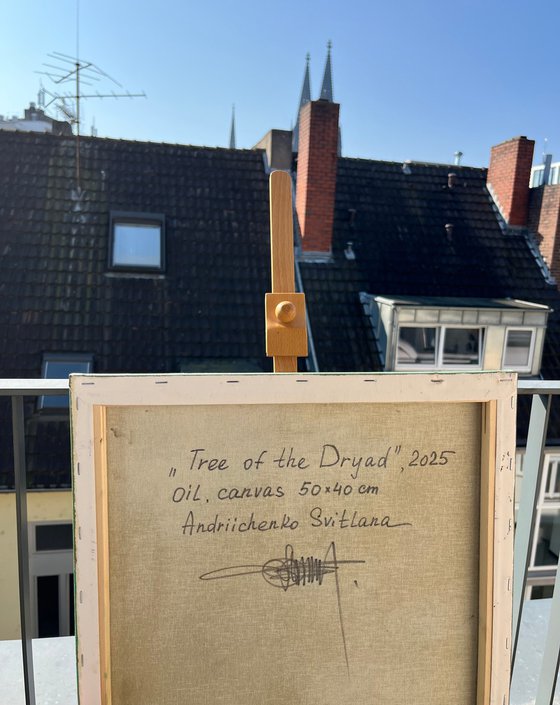 „Tree of the Dryad”, 2025
Oil, canvas 50×40 cm
Andriichenko Svitlana